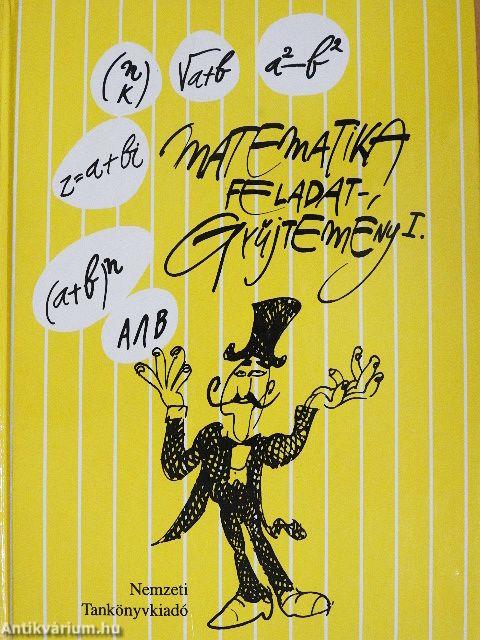 (n K)
√a+b
a²-b²
z=a+bi
(a+b)ⁿ
A∧B
MATEMATIKA
FELADAT-
GYŰJTEMÉNY I.
Nemzeti
Tankönyvkiadó
Antikvárium.hu